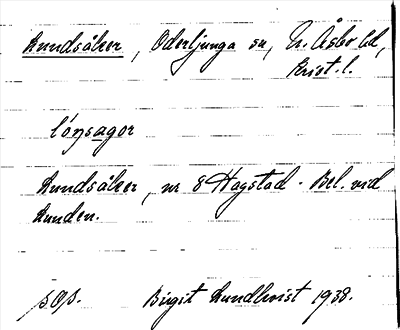 Lundsåker, Oderljunga sn, N. Åsbo hd,
Krist. l.
Lundsåker, nr 8 Hagstad. Bel. vid
Lunden.
Birgit Lundkvist 1938.